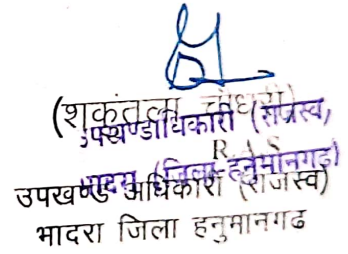 (शकुंतला चौधरी)
उपखण्डाधिकारी (राजस्व)
R A S
भादरा (जिला हनुमानगढ़)
उपखण्ड अधिकारी (राजस्व)
भादरा जिला हनुमानगढ